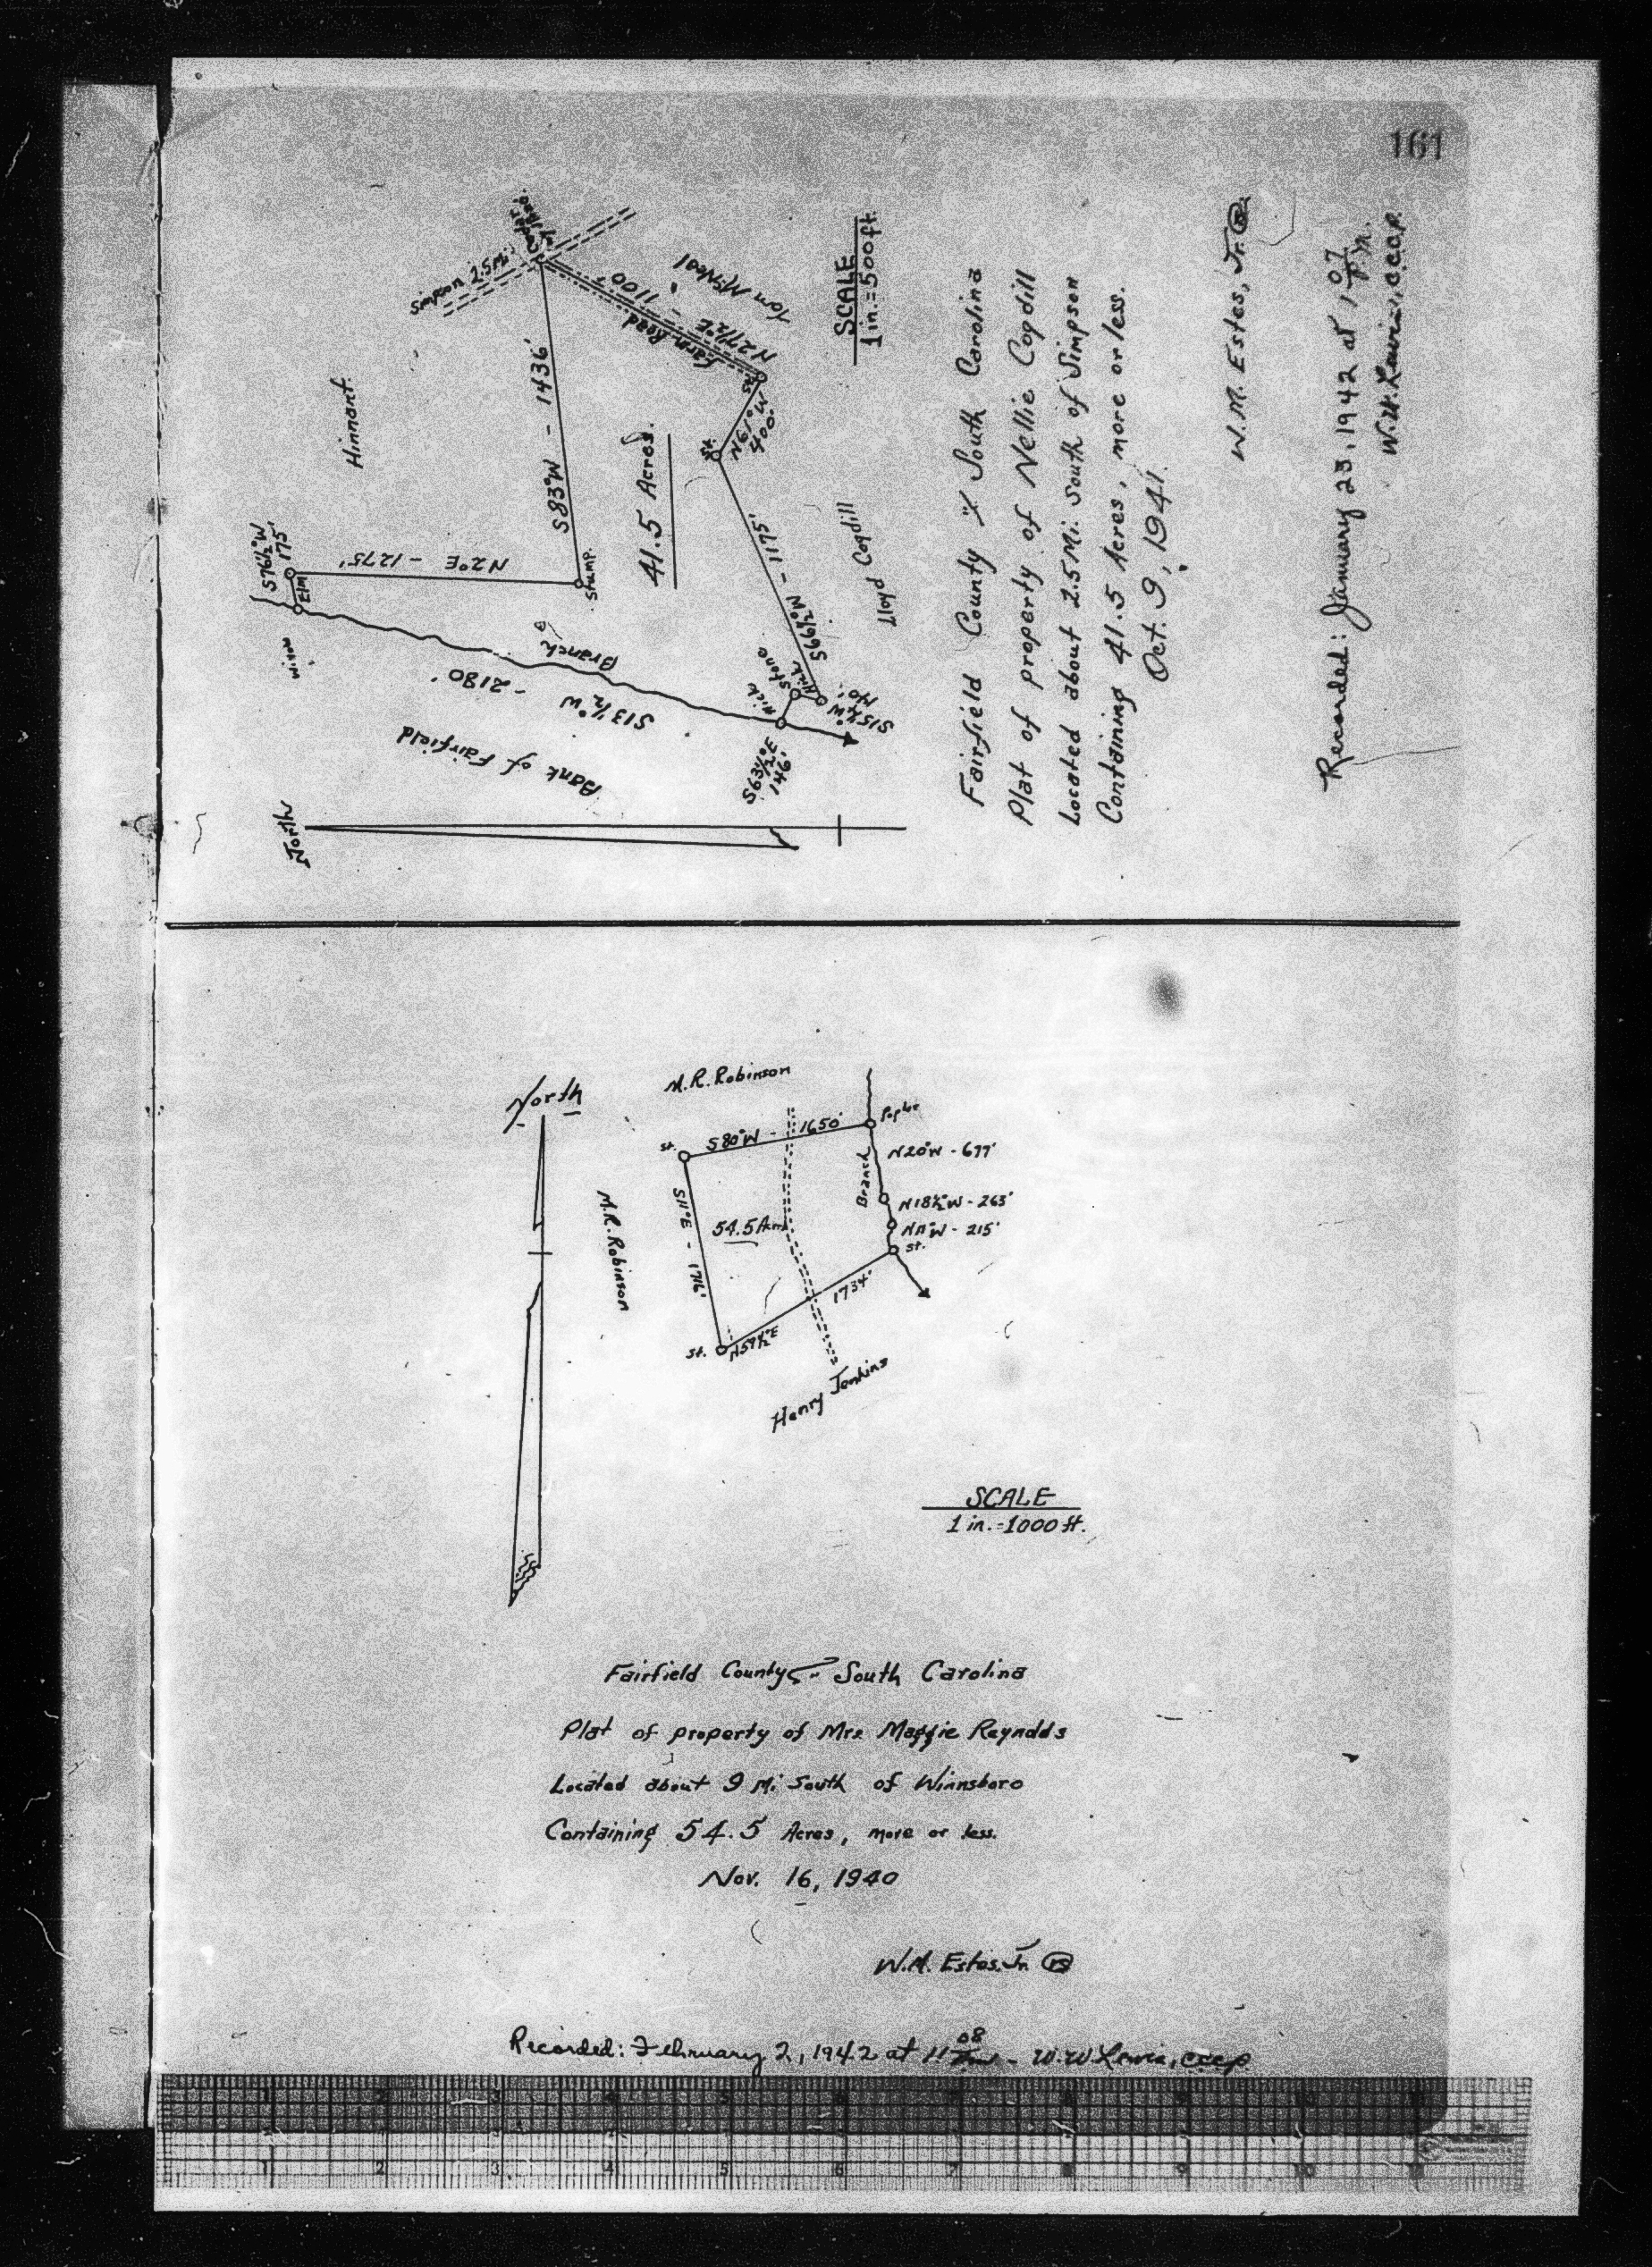 161
North
Simpson 2.5 Mi.
Hinnant
S76½°W
175'
Elm
N2°E - 1275'
S83°W - 1436'
Stump.
Farm Road
N27½°E - 1100'
Tom McNeal
St.
N61°W
400'
St.
41.5 Acres.
S66½°W - 1175'
Lloyd Cogdill
Hick
Stone
Hick
140'
S63½°E
146'
Branch
S13½°W - 2180'
Bank of Fairfield
SCALE
1 in. = 500 ft.
Fairfield County South Carolina
Plat of property of Nellie Cogdill
Located about 2.5 Mi. South of Simpson
Containing 41.5 Acres, more or less.
Oct. 9, 1941.
W.M. Estes, Jr.
Recorded: January 23, 1942 at 1 07 P.M.
W.W. Lewis, C.C.C.P.
North
M.R. Robinson
St.
S80°W - 1650'
Poplar
Branch
N20°W - 677'
N18½°W - 263'
W - 215'
St.
M.R. Robinson
S11°E - 1716'
54.5 Acres
St.
N59½°E
1734'
Henry Jenkins
SCALE
1 in. = 1000 ft.
Fairfield County South Carolina
Plat of property of Mrs Maggie Reynolds
Located about 9 Mi South of Winnsboro
Containing 54.5 Acres, more or less.
Nov. 16, 1940
W.M. Estes, Jr.
Recorded: February 2, 1942 at 11 08 - W.W Lewis, cccp
1 2 3 4 5 6 7 8 9 10 11